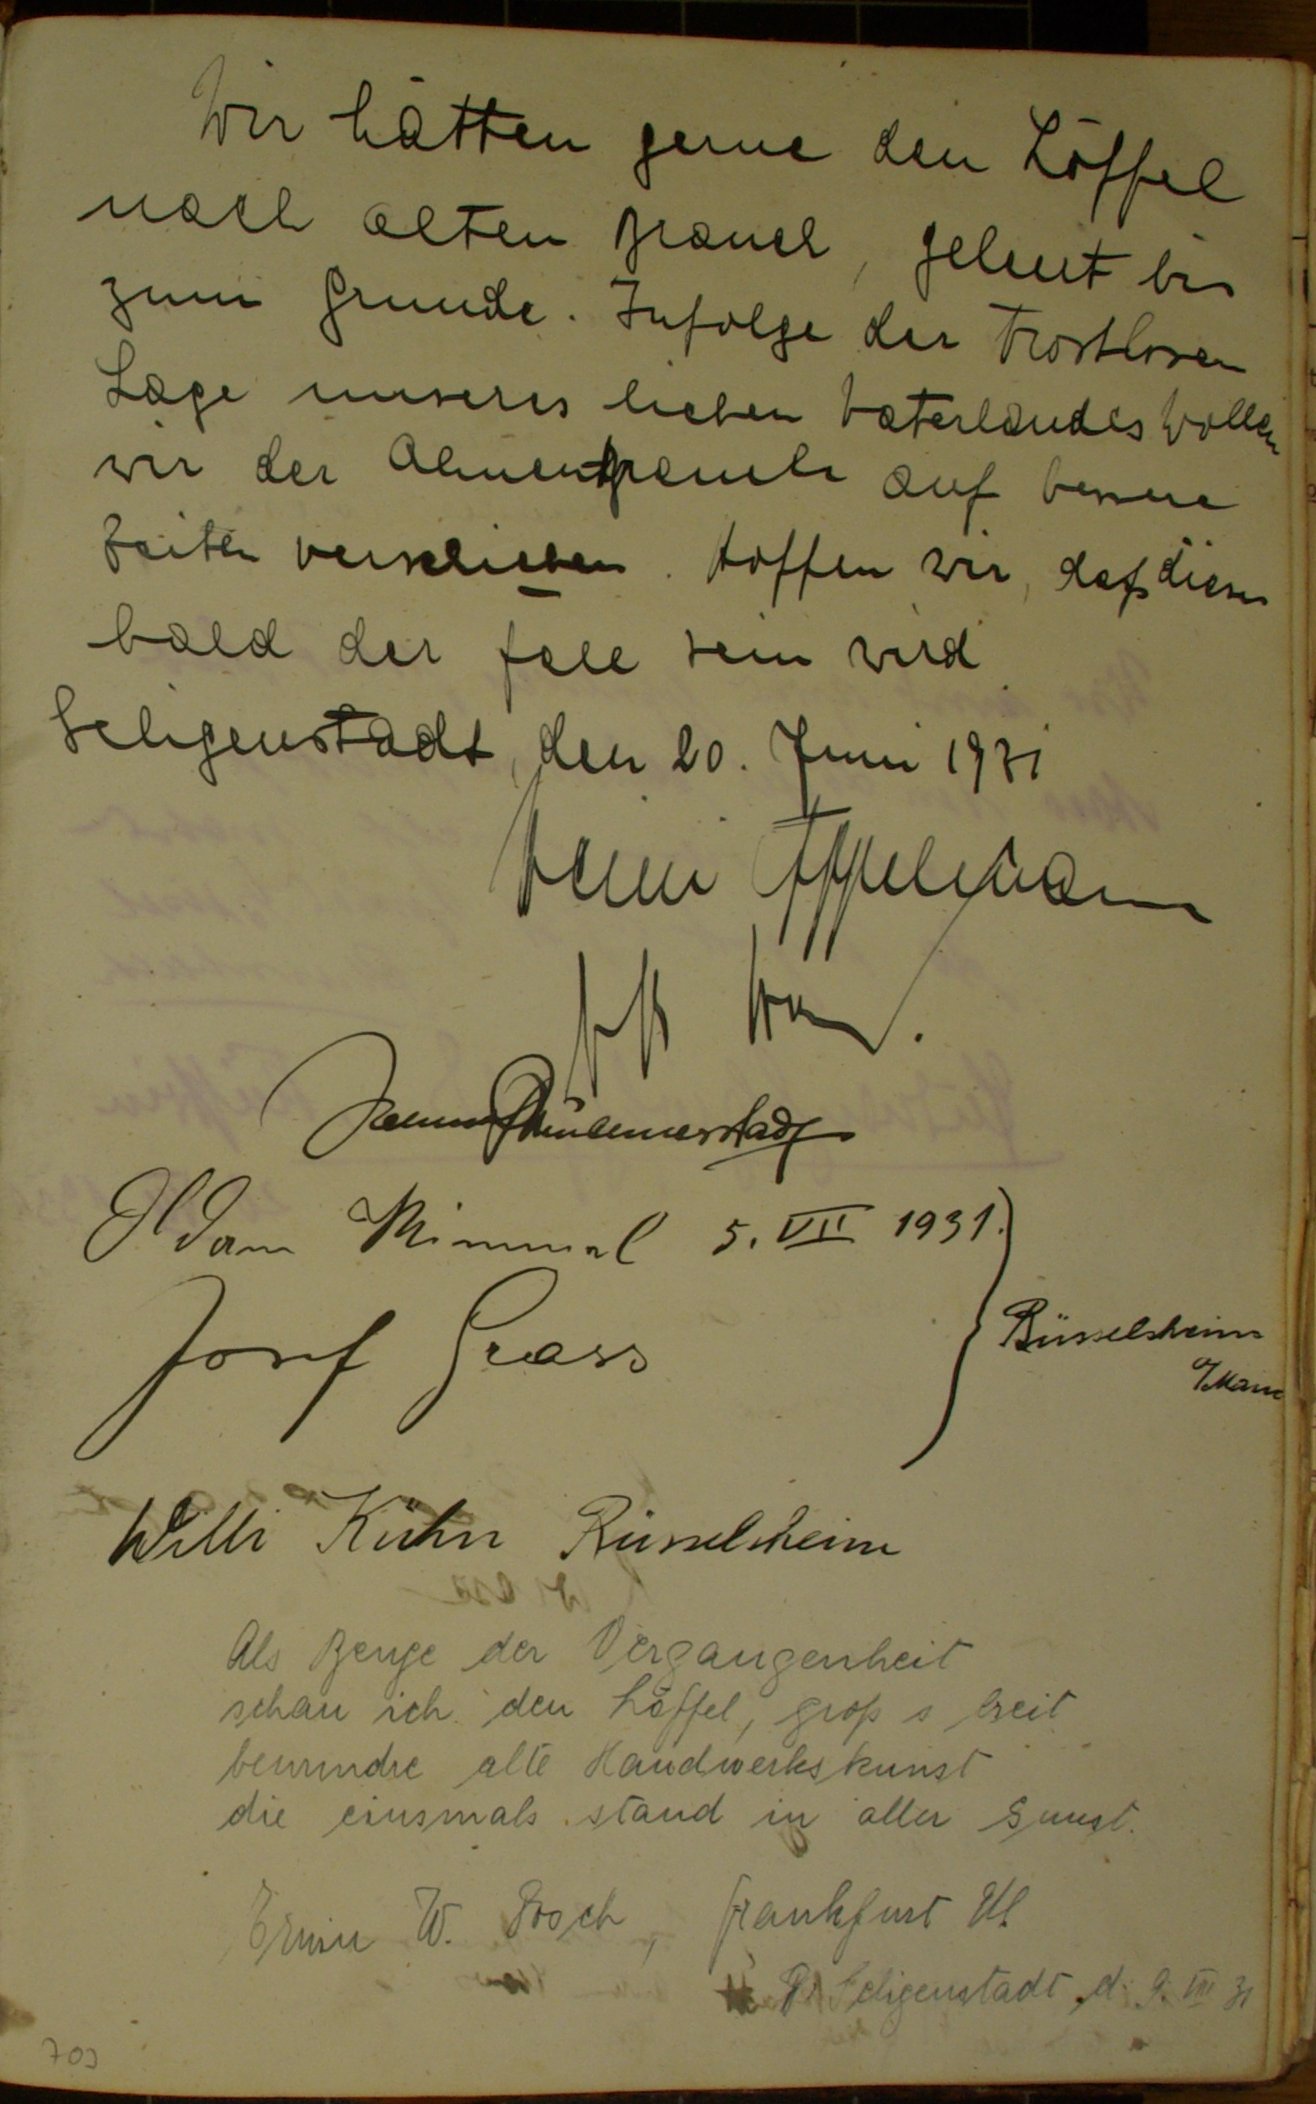 Wir hätten gerne den Löffel
nach alten Brauch, geleert bis
zum Grunde. Infolge der trostlosen
Lage unseres lieben Vaterlandes wollen
wir der auf bessere
Zeiten verschieben. Hoffen wir, daß dieses
bald der Fall sein wird
Seligenstadt, den 20. Juni 1931
Adam Himmel 5. VII 1931.
Josef Grass
Rüsselsheim
a/Main
Willi Kühn Rüsselsheim
Als Zeuge der Vergangenheit
schau ich den Löffel, groß s breit
bewundre alte Handwerkskunst
die einsmals stand in aller Gunst.
Erwin W. Bosch, Frankfurt M
Seligenstadt, d. 9. VIII 31
703